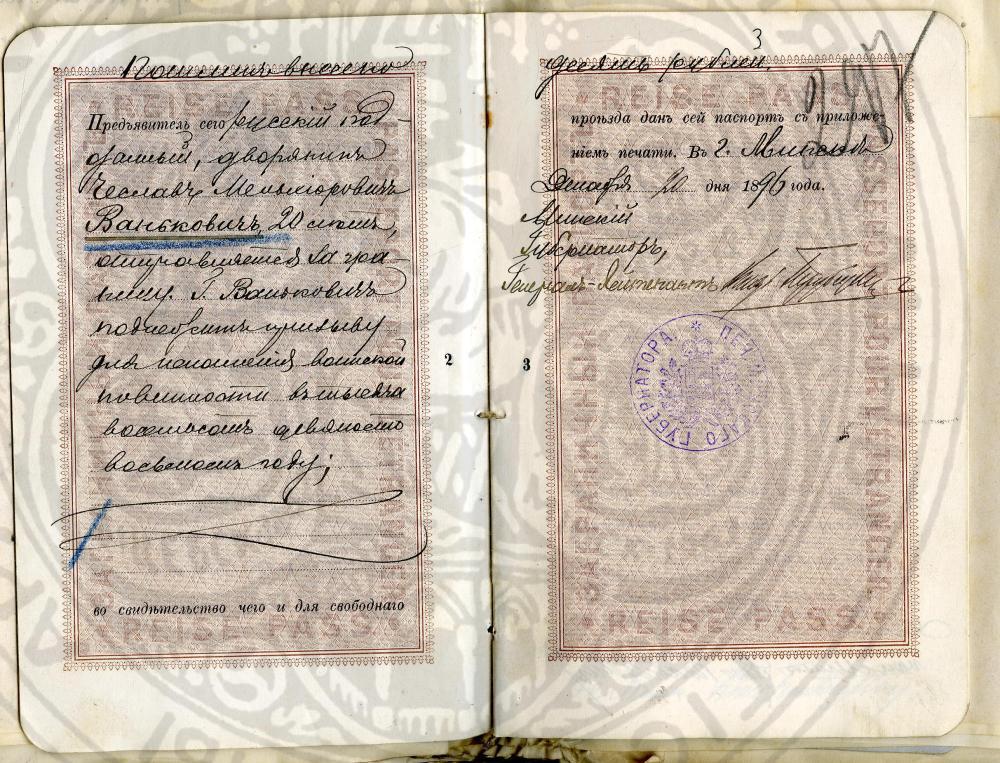 Пошлинъ внесено
REISE PASS
Предъявитель сего русскій под-
данный, дворянинъ
Чеславъ Мельхіоровичъ
Ваньковичъ, 20 лѣтъ,
отправляется за гра-
ницу. Г. Ваньковичъ
подлежитъ призыву
для исполненія воинской
повинности въ тысяча
восемьсотъ девяносто
восьмомъ году;
во свидѣтельство чего и для свободнаго
REISE PASS
2
3
десять рублей
REISE PASS
проѣзда данъ сей паспортъ съ приложе-
ніемъ печати. Въ г. Минскѣ
Декабря 20 дня 1896 года.
Минскій
Губернаторъ,
Генералъ-Лейтенантъ
ГУБЕРНАТОРА
3
PASSEPORT POUR L'ETRANGER
ЗАГРАНИЧНЫЙ
REISE PASS